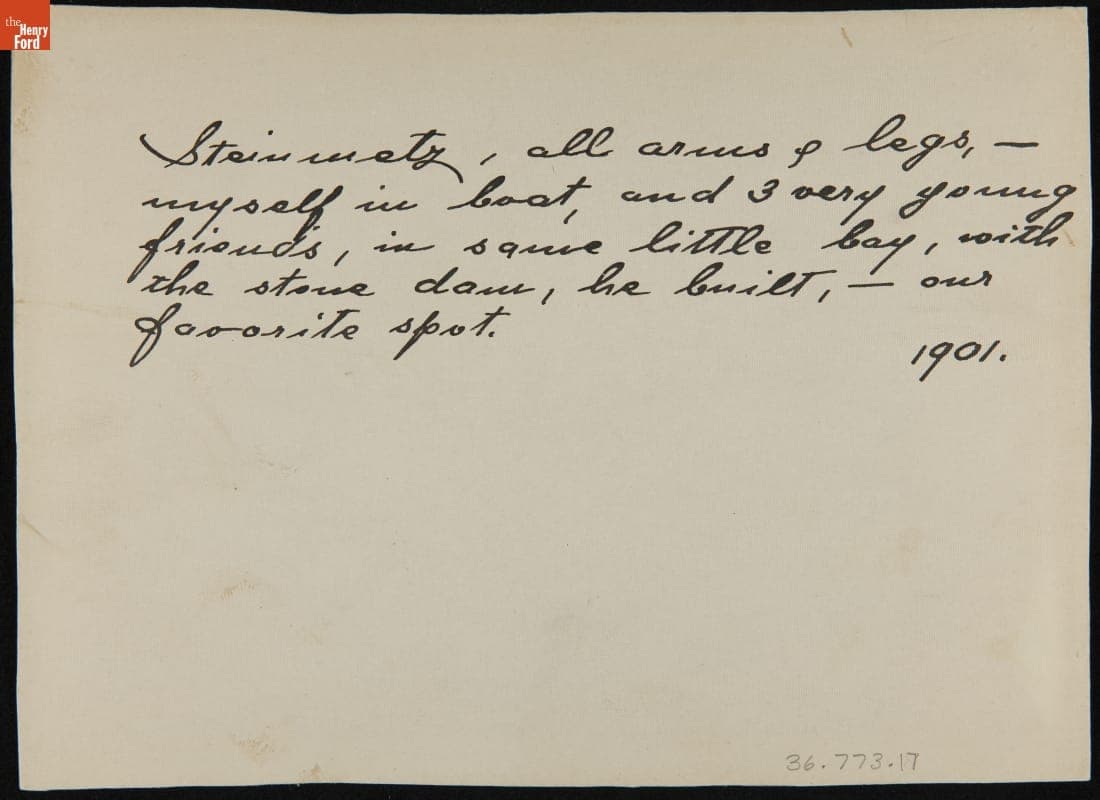 the
Henry
Ford
Steinmetz, all arms & legs, —
myself in boat, and 3 very young
friends, in same little bay, with
the stone dam, he built, — our
favorite spot.
1901.
36.773.17